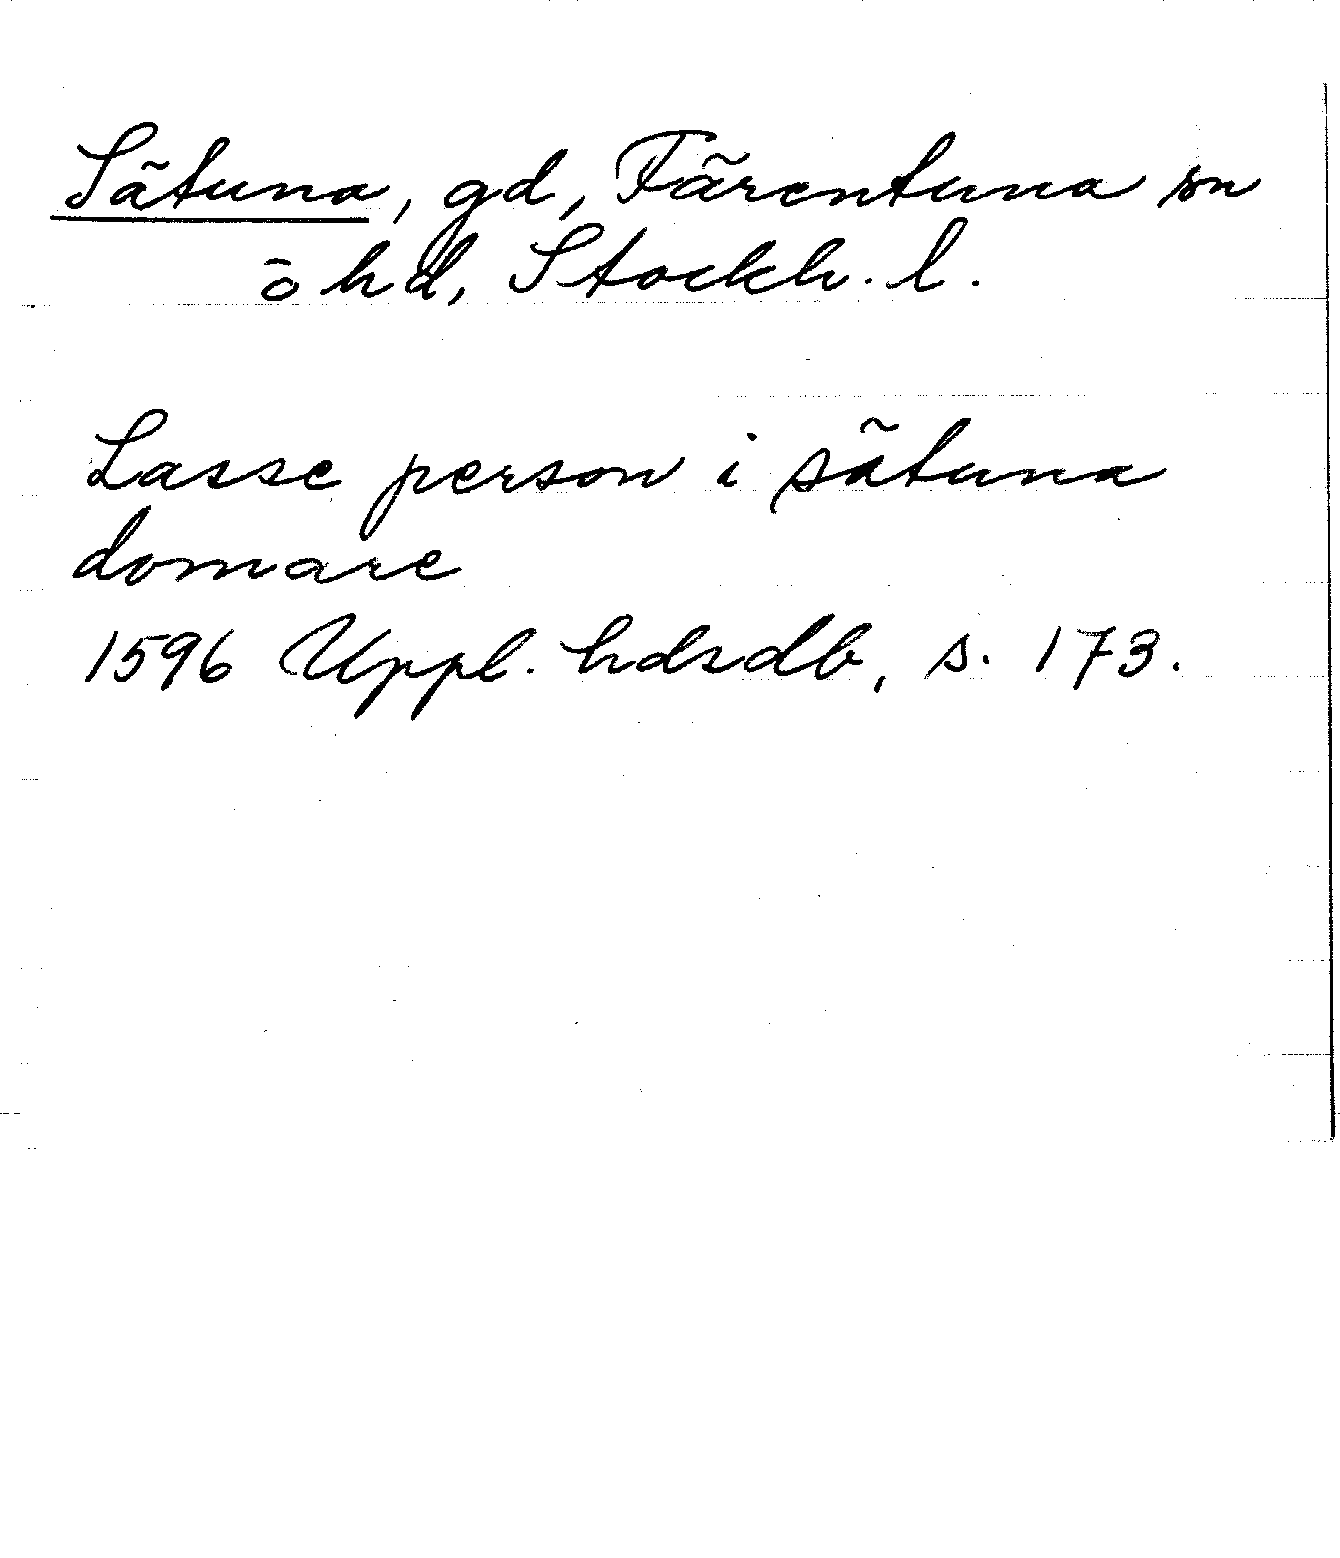 Sätuna, gd, Färentuna sn
o hd, Stockh. l.
Lasse person i sätuna
domare
1596 Uppl. hdsdb, s. 173.